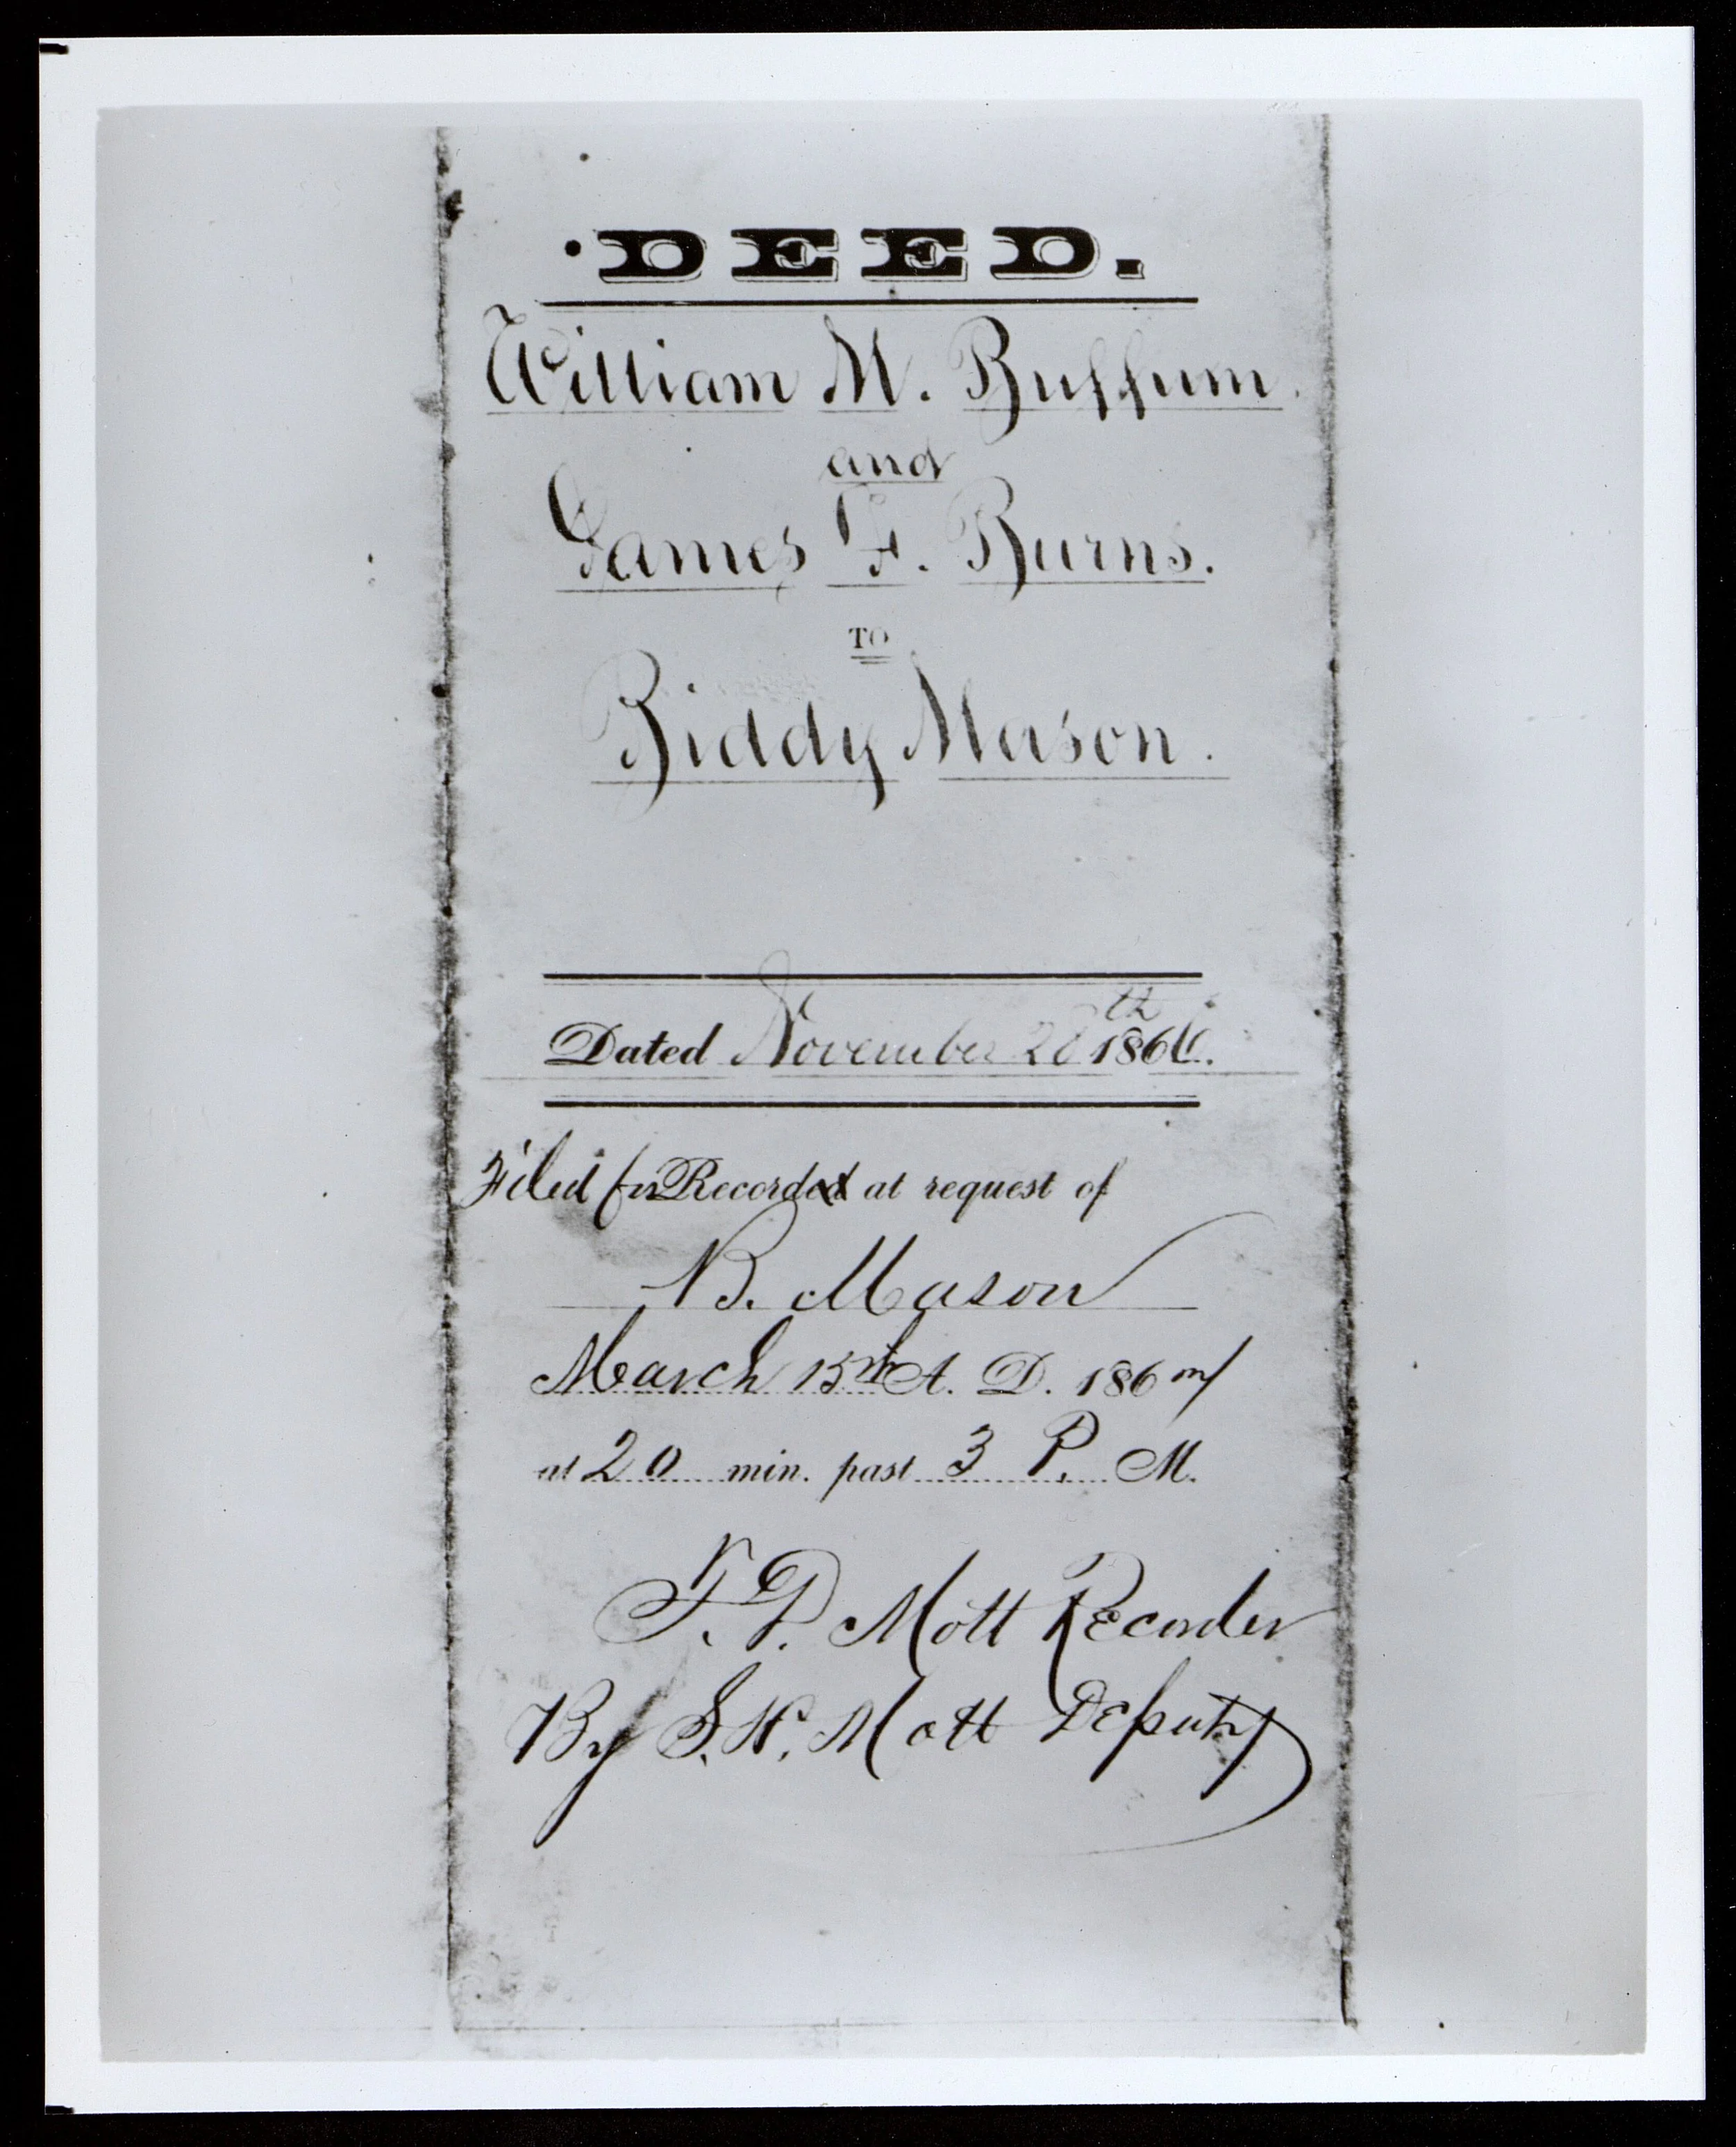 DEED.
William M. Buffum.
and
James F. Burns.
TO
Biddy Mason.
Dated November 28th 1866.
Filed for Recorded at request of
B. Mason
March 15th A. D. 186
at 20 min. past 3 P. M.
T. D. Mott Recorder
By S. H. Mott Deputy